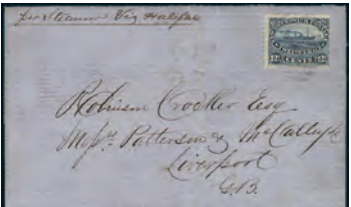 per Steamer Via Halifax
NEW BRUNSWICK POSTAGE
12½ CENTS 12½
Robinson Crocker Esq
Messrs. Patterson &
Liverpool
G.B.